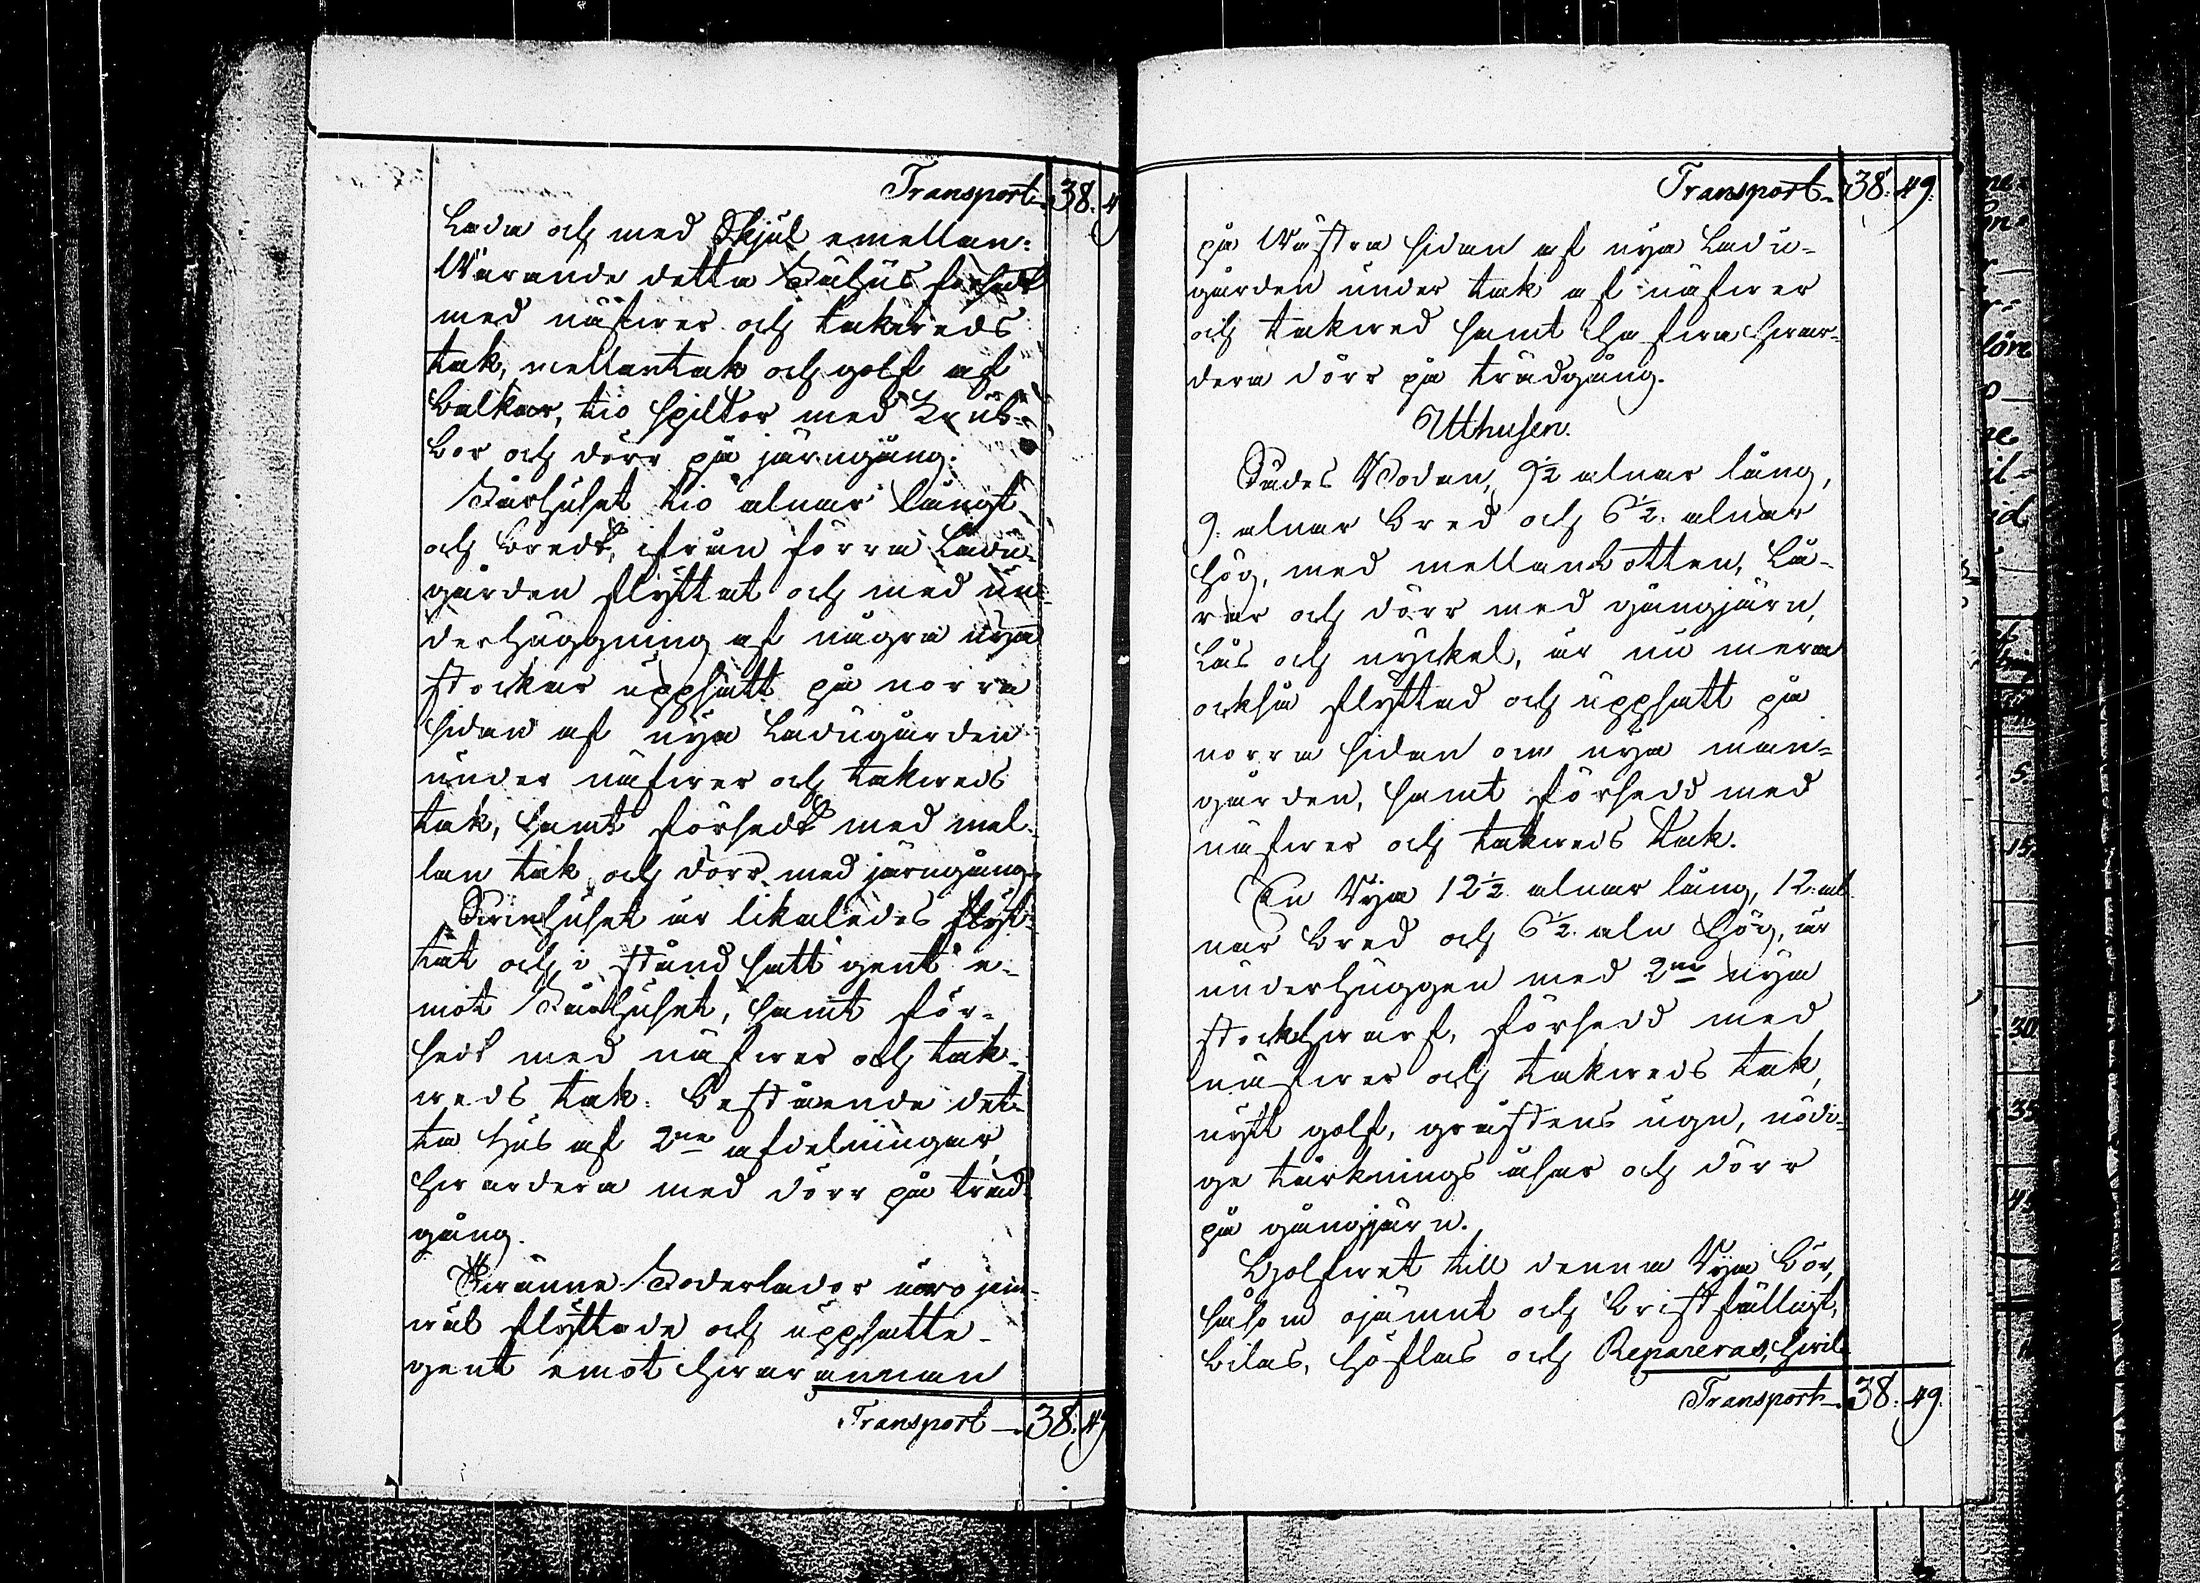 Transport 38. 4
Lada och med Skjul emellan.
Warande detta Fähus försedt
med näfwer och takweds
tak, mellantak och golf af
balkar, tio spiltor med Krub-
bor och dörr på järngång.
Fårhuset tio alnar långt
och bredt, ifrån förra Ladu-
gården flyttat och med un-
derhuggning af några nya
stockar uppsatt på norra
sidan af nya Ladugården
under näfwer och takweds
tak, samt försedt med mel-
lan tak och dörr med järngång.
Swinhuset är likaledes flyt-
tat och i stånd satt gent e-
mot Fårhuset, samt för-
sedt med näfwer och tak-
weds tak. Bestående det-
ta hus af 2ne afdelningar,
hwardera med dörr på träd-
gång.
Twänne Foderlador äro jem-
wäl flyttade och uppsatte
gent emot hwarannan
Transport 38. 49
Transport 38. 49.
på Wästra sidan af nya Ladu-
gården under tak af näfwer
och takwed samt hafwa hwar-
dera dörr på trädgång.
Uthusen.
Sädes Boden, 9½ alnar lång,
9. alnar bred och 6½. alnar
hög, med mellanbotten, Lå-
rar och dörr med gångjärn,
Lås och nyckel, är nu mera
också flyttad och uppsatt på
norra sidan om nya man-
gården, samt försedd med
näfwer och takweds tak.
En Ria 12½ alnar lång, 12. al-
nar bred och 6½. aln hög, är
underhuggen med 2ne nya
stockhwarf, försedd med
näfwer och takweds tak,
nytt golf, gråstens ugn, nödi-
ge tårknings åsar och dörr
på gångjärn.
Golfwet till denna Ria bör,
såsom ojämnt och bristfälligt,
bilas, höflas och Repareras, hwil-
Transport 38. 49.